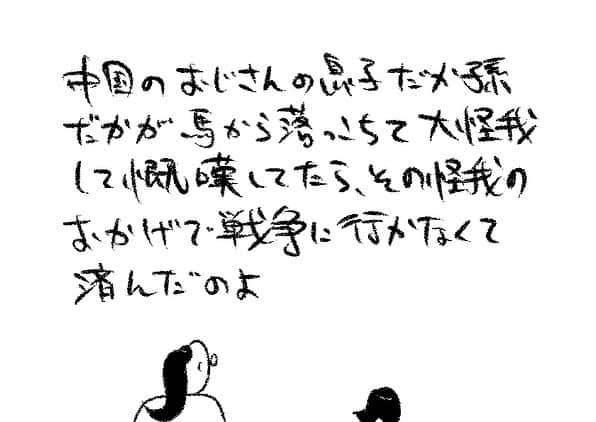 中国のおじさんの息子だか孫
だかが馬から落っこちて大怪我
して慨嘆してたら、その怪我の
おかげで戦争に行かなくて
済んだのよ